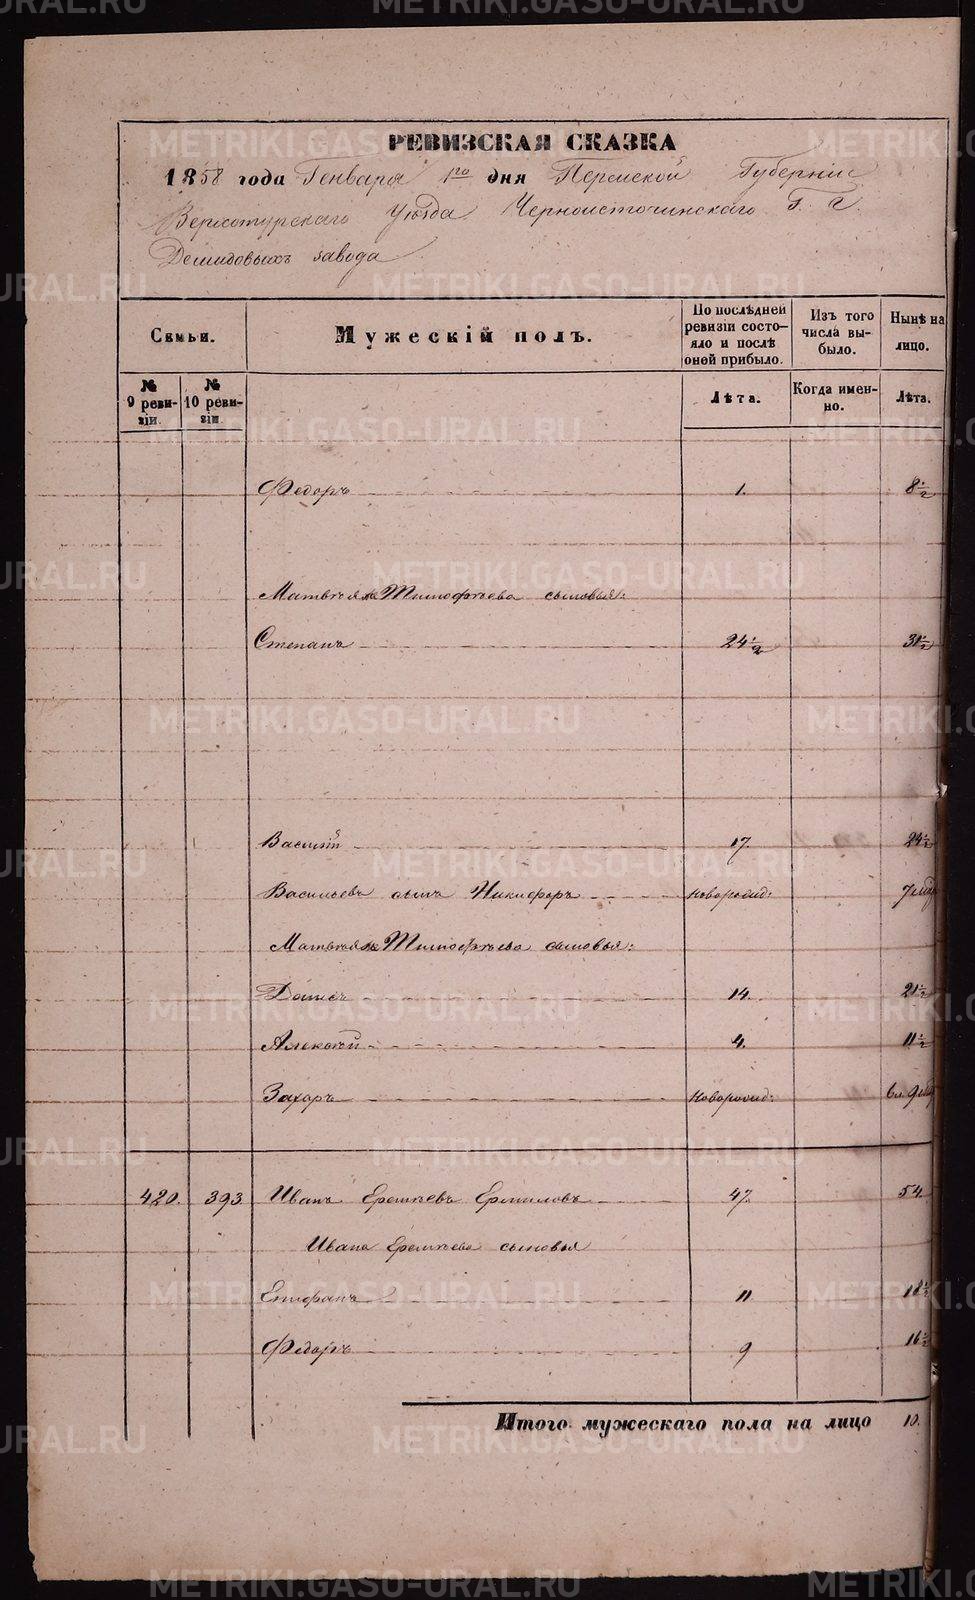 РЕВИЗСКАЯ СКАЗКА
1858 года Генваря 1го дня Пермской Губерніи
Верхотурскаго Уѣзда Черноисточинскаго Г. Г.
Демидовыхъ завода
Семьи. Мужескій полъ. По послѣдней ревизіи состояло и послѣ оной прибыло. Изъ того числа выбыло. Нынѣ на лицо.
№ 9 ревизіи. № 10 ревизіи. Лѣта. Когда именно. Лѣта.
Федоръ 1. 8½
Матвѣя Тимофѣева сыновья:
Степанъ 24½ 31½
Василій 17 24½
Васильевъ сынъ Никифоръ новорожд:
Матвѣя Тимофѣева сыновья:
14. 21½
Алексѣй 4. 11½
Захаръ новорожд:
420. 393 Иванъ Еремѣевъ Ермиловъ 47. 54
Ивана Еремѣева сыновья
11 18½
Федоръ 9 16½
Итого мужескаго пола на лицо 10.
METRIKI.GASO-URAL.RU